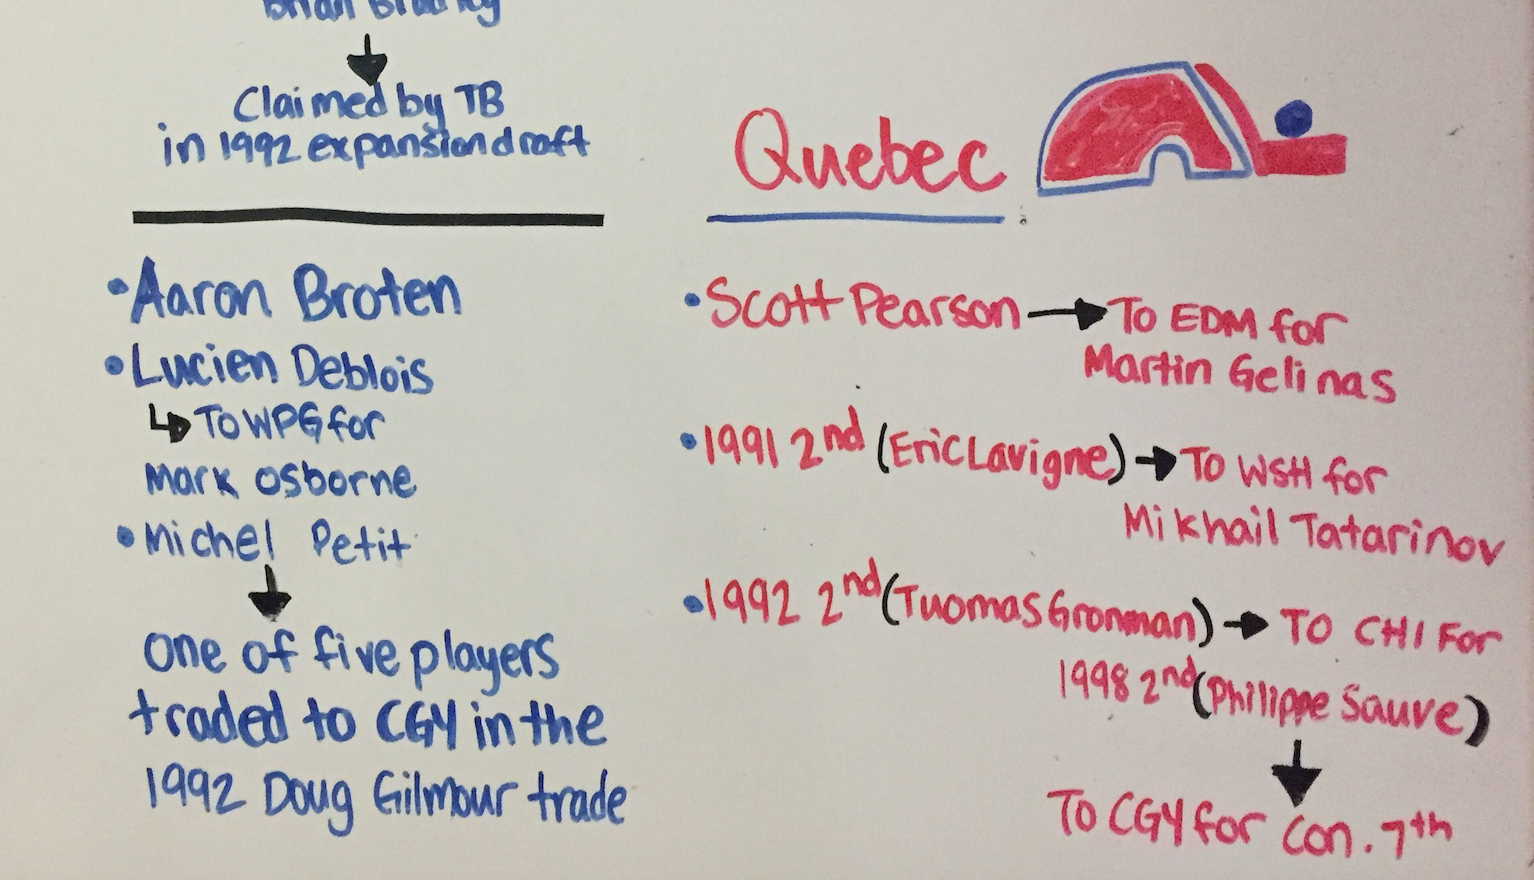 Brian Bradley
Claimed by TB
in 1992 expansion draft
•Aaron Broten
•Lucien Deblois
↳ To WPG for
Mark Osborne
•Michel Petit
one of five players
traded to CGY in the
1992 Doug Gilmour trade
Quebec
•Scott Pearson → To EDM for
Martin Gelinas
•1991 2nd (Eric Lavigne) → To WSH for
Mikhail Tatarinov
•1992 2nd (Tuomas Gronman) → To CHI For
1998 2nd (Philippe Sauve)
To CGY for con. 7th